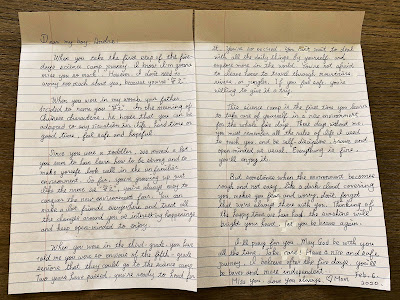 Dear my boy, Andre:
When you take the first step of the five-
days science camp journey, I know I'm gonna
miss you so much. However, I don't need to
worry too much about you, because you're "

When you were in my womb, your father
decided to name you " ". In the meaning of
Chinese characters, he hopes that you can be
adapted to any situation in life, hard time or
good time, feel safe and hopeful.

Since you were a toddler, we moved a lot
you seem to has learn how to be strong and to
make yourself look well in the unfamiliar
environment. So far, you're growing up just
like the name as " ", you're always easy to
conquer the new environment fear. You can
make a lot friends everywhere and treat all
the changes around you as interesting happenings
and keep open-minded to enjoy.

When you were in the third grade, you have
told me you were so envied of the fifth-grade
seniors that they could go to the science camp.
Two years have passed, you're ready to head for
it. You're so excited. You can't wait to deal
with all the daily things by yourself and
explore more in the world. You're not afraid
to leave home to travel through mountains,
rivers or jungles. If you feel safe, you're
willing to give it a try.

This science camp is the first time you learn
to take care of yourself in a new environment
for the whole five days. These days without me,
you must remember all the rules of life I used
to teach you, and be self-discipline, brave and
open-minded as usual. Everything is fine,
you'll enjoy it.

But sometimes when the environment becomes
rough and not easy, like a dark cloud covering
you, makes you fear and worry, don't forget
that we're always there with you. Thinking of
the happy time we has had, the sunshine will
bright your heart, let you be brave again.

I'll pray for you. May God be with you
all the time. Take care! Have a nice and safe
journey. I believe after the five days, you'll
be brave and more independent.
Feb. 6.
Miss you, love you always, Mom
2020.